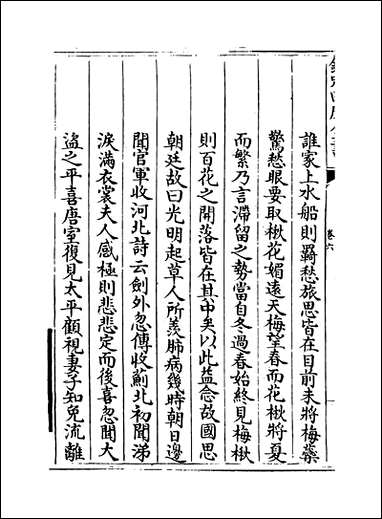 卷六
誰家上水船則羇愁旅思皆在目前未將梅蘂
驚愁眼要取楸花媚遠天梅望春而花楸將夏
而繁乃言滯留之勢當自冬過春始終見梅楸
則百花之開落皆在其中矣以此益念故國思
朝廷故曰光明起草人所羨肺病幾時朝日邊
聞官軍收河北詩云劍外忽傳收薊北初聞涕
淚滿衣裳夫人感極則悲悲定而後喜忽聞大
盜之平喜唐室復見太平顧視妻子知免流離